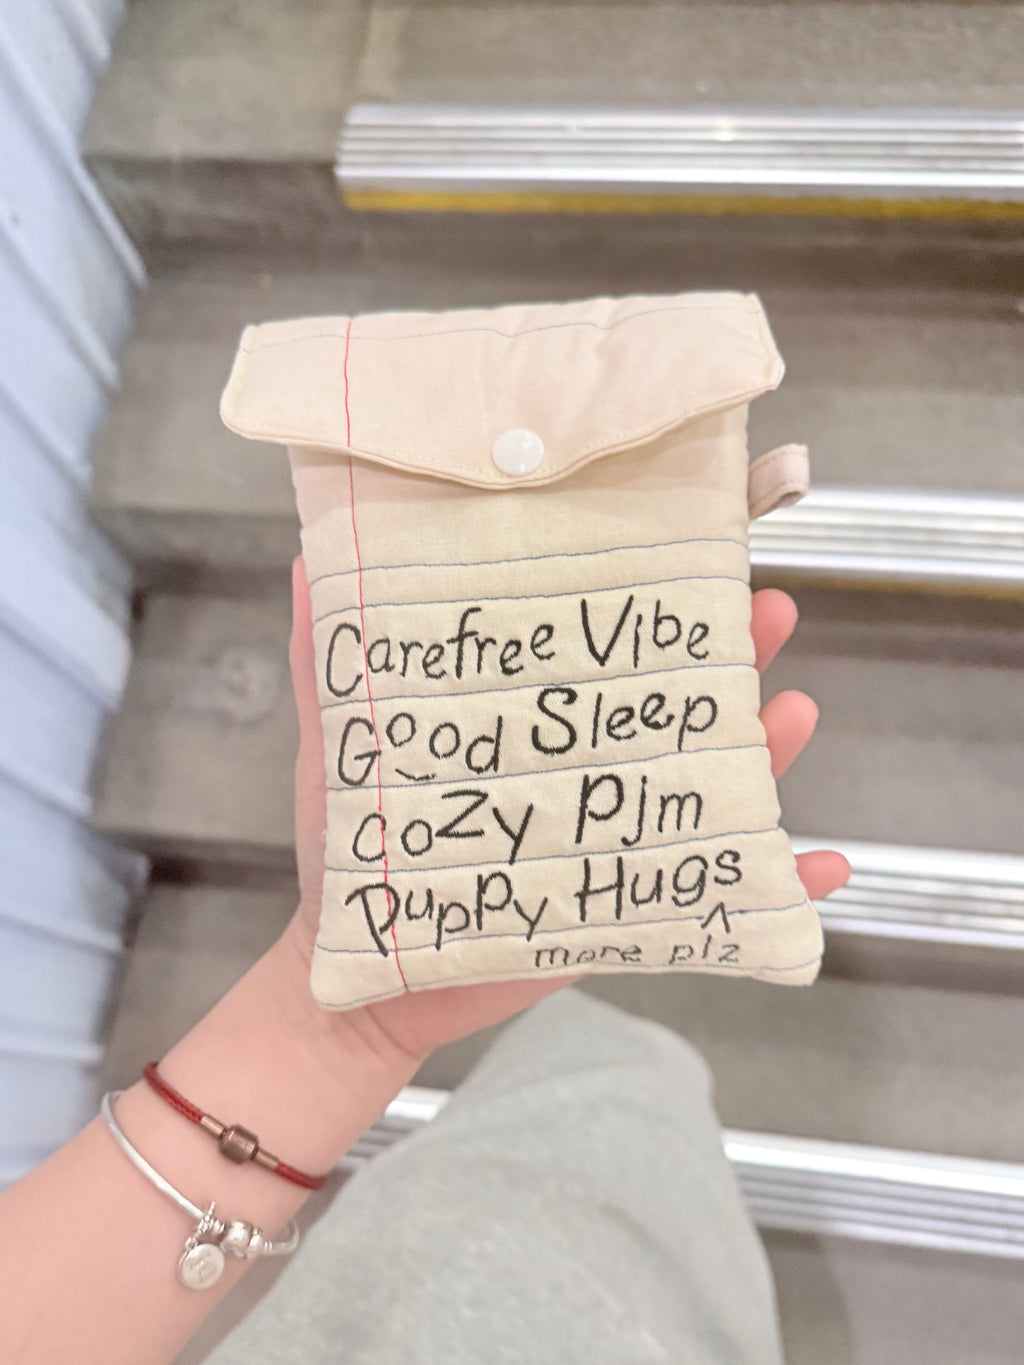 Carefree Vibe
Good Sleep
cozy Pjm
Puppy Hugs
^
more plz